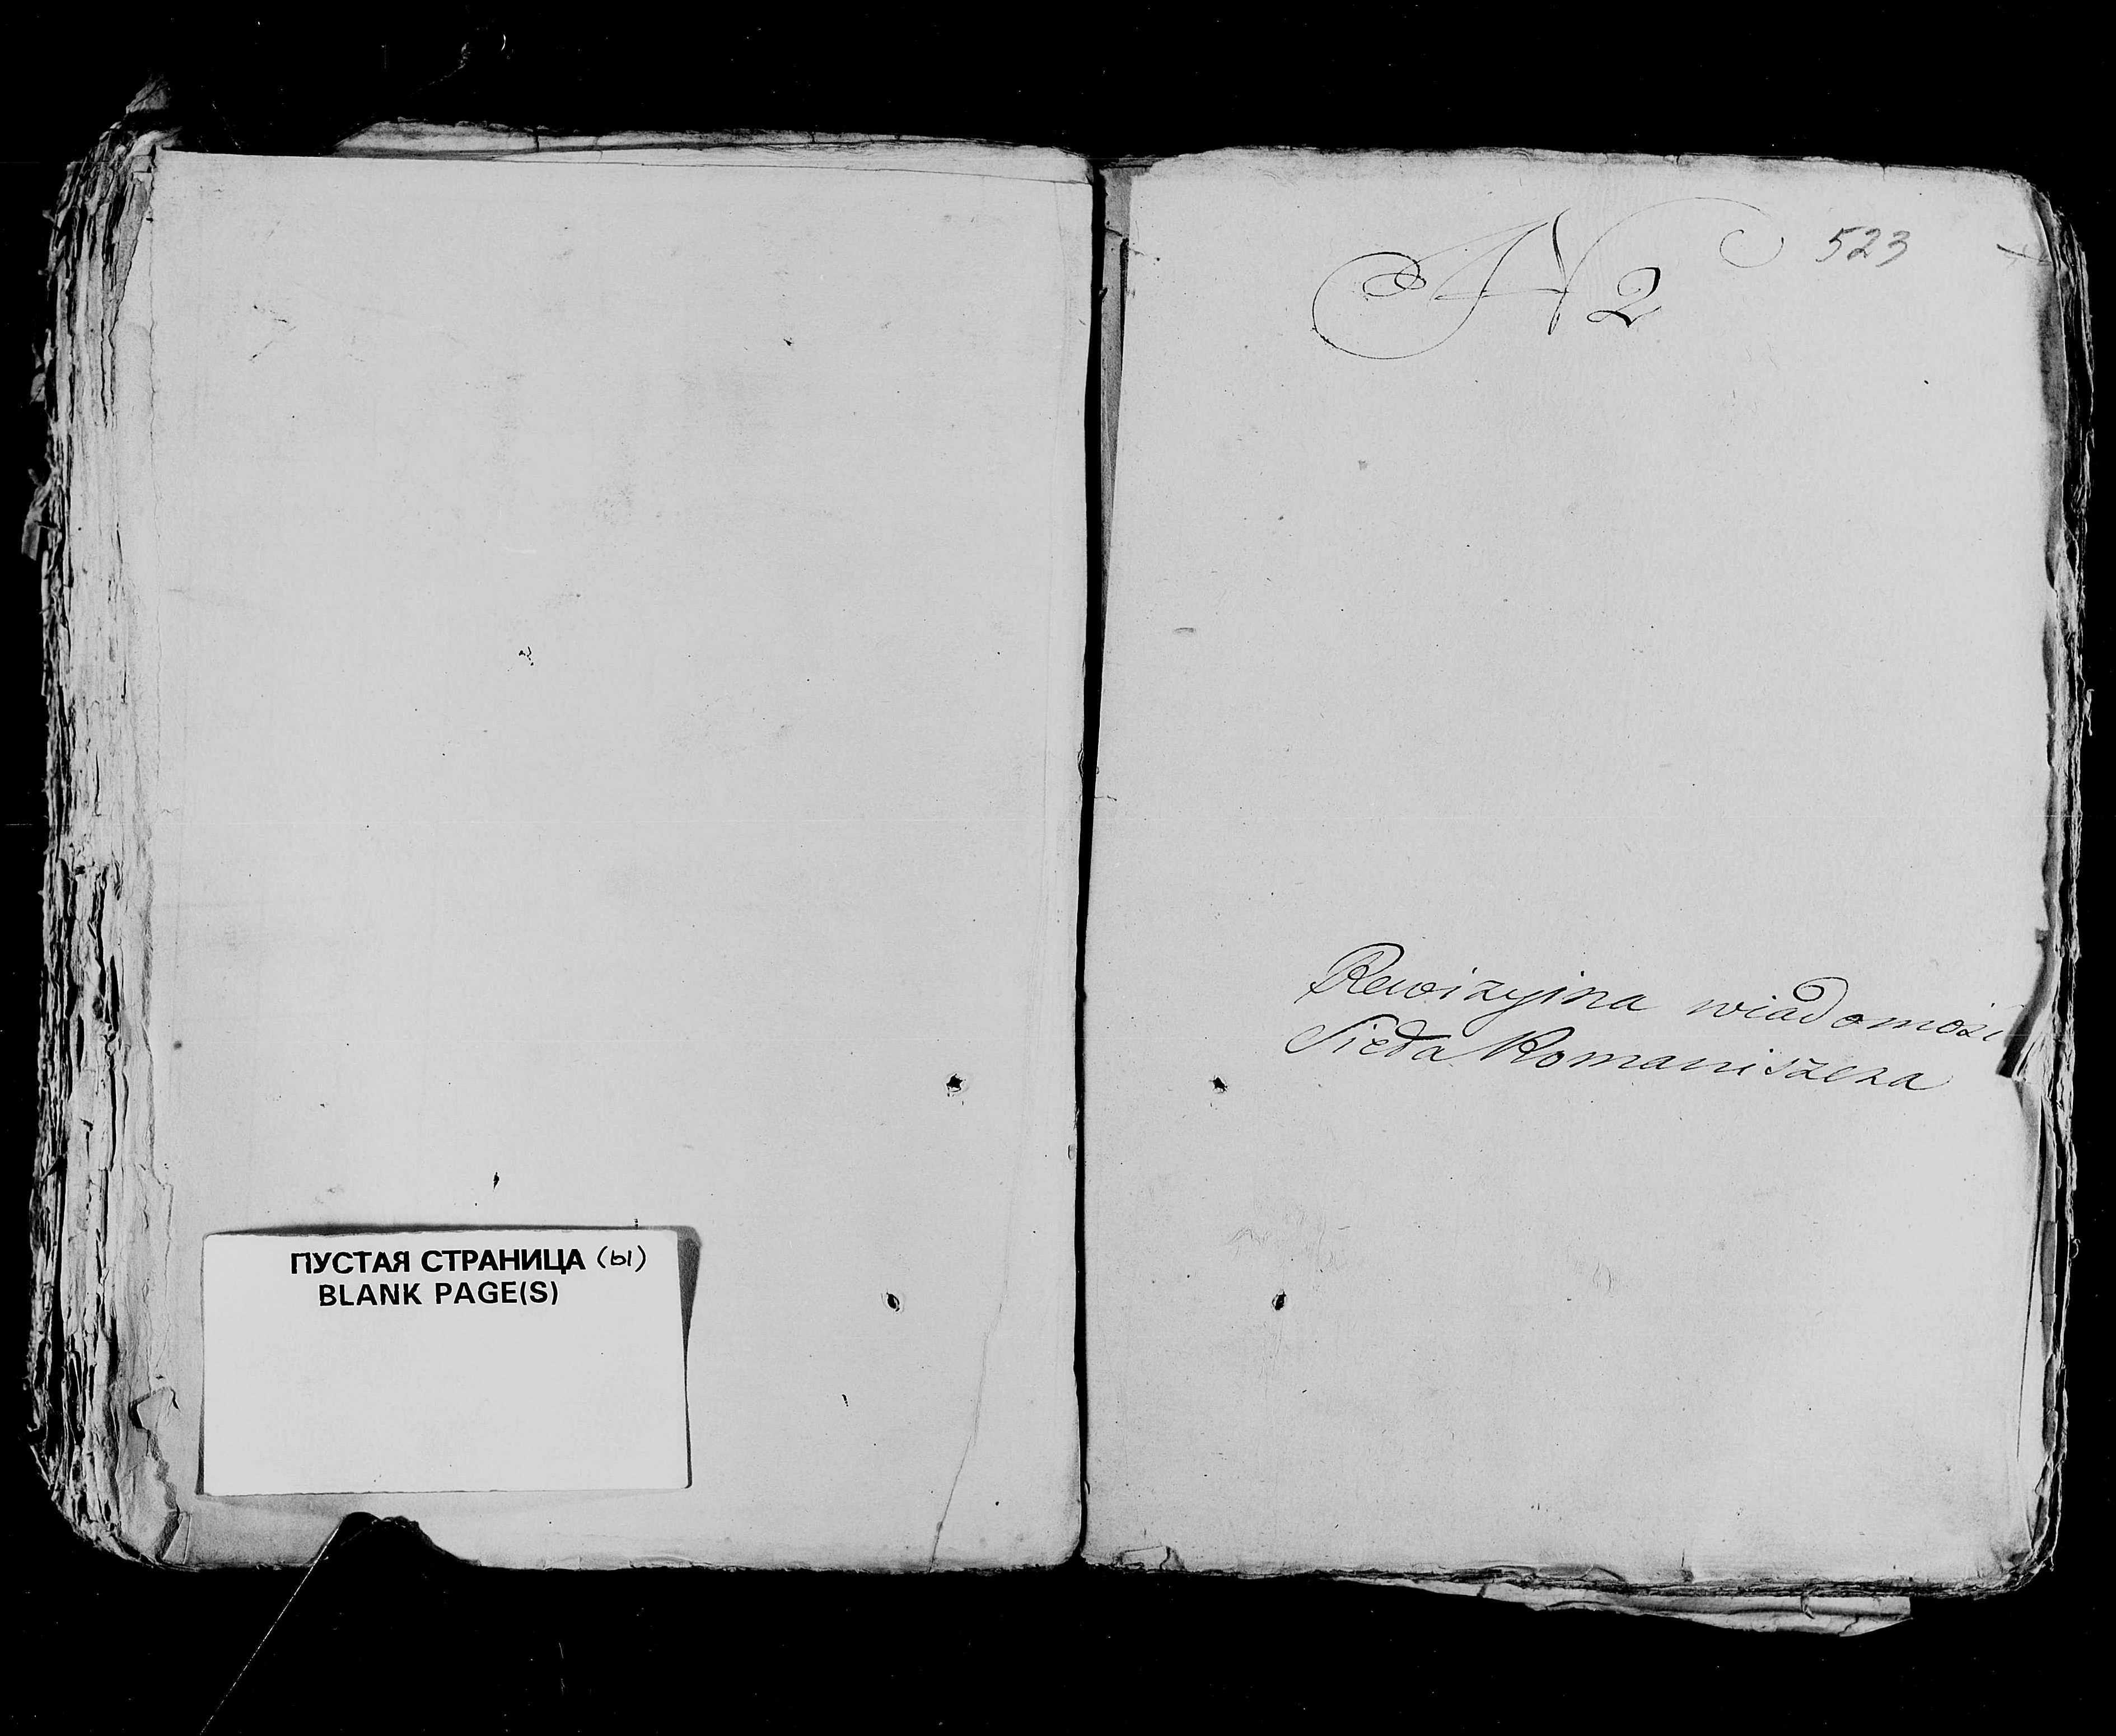 ПУСТАЯ СТРАНИЦА (ы)
BLANK PAGE(S)
N 2
523
Rewizyina wiadomość
Sioła Romaniszcza